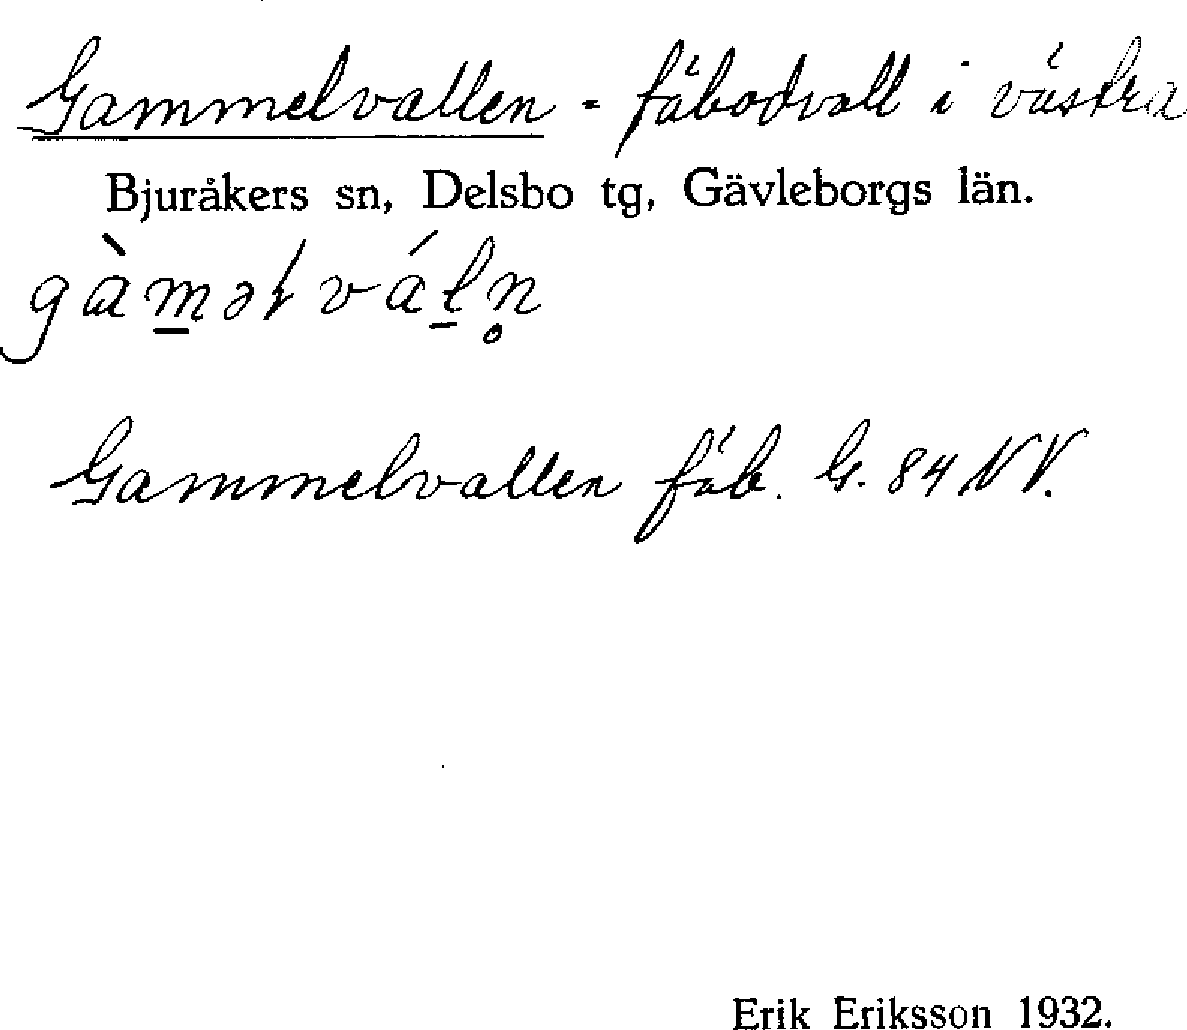 Gammelvallen - fäbodvall i västra
Bjuråkers sn, Delsbo tg, Gävleborgs län.
gàm̲əɫváḻn̥
Gammelvallen fäb. G. 84 NV.
Erik Eriksson 1932.